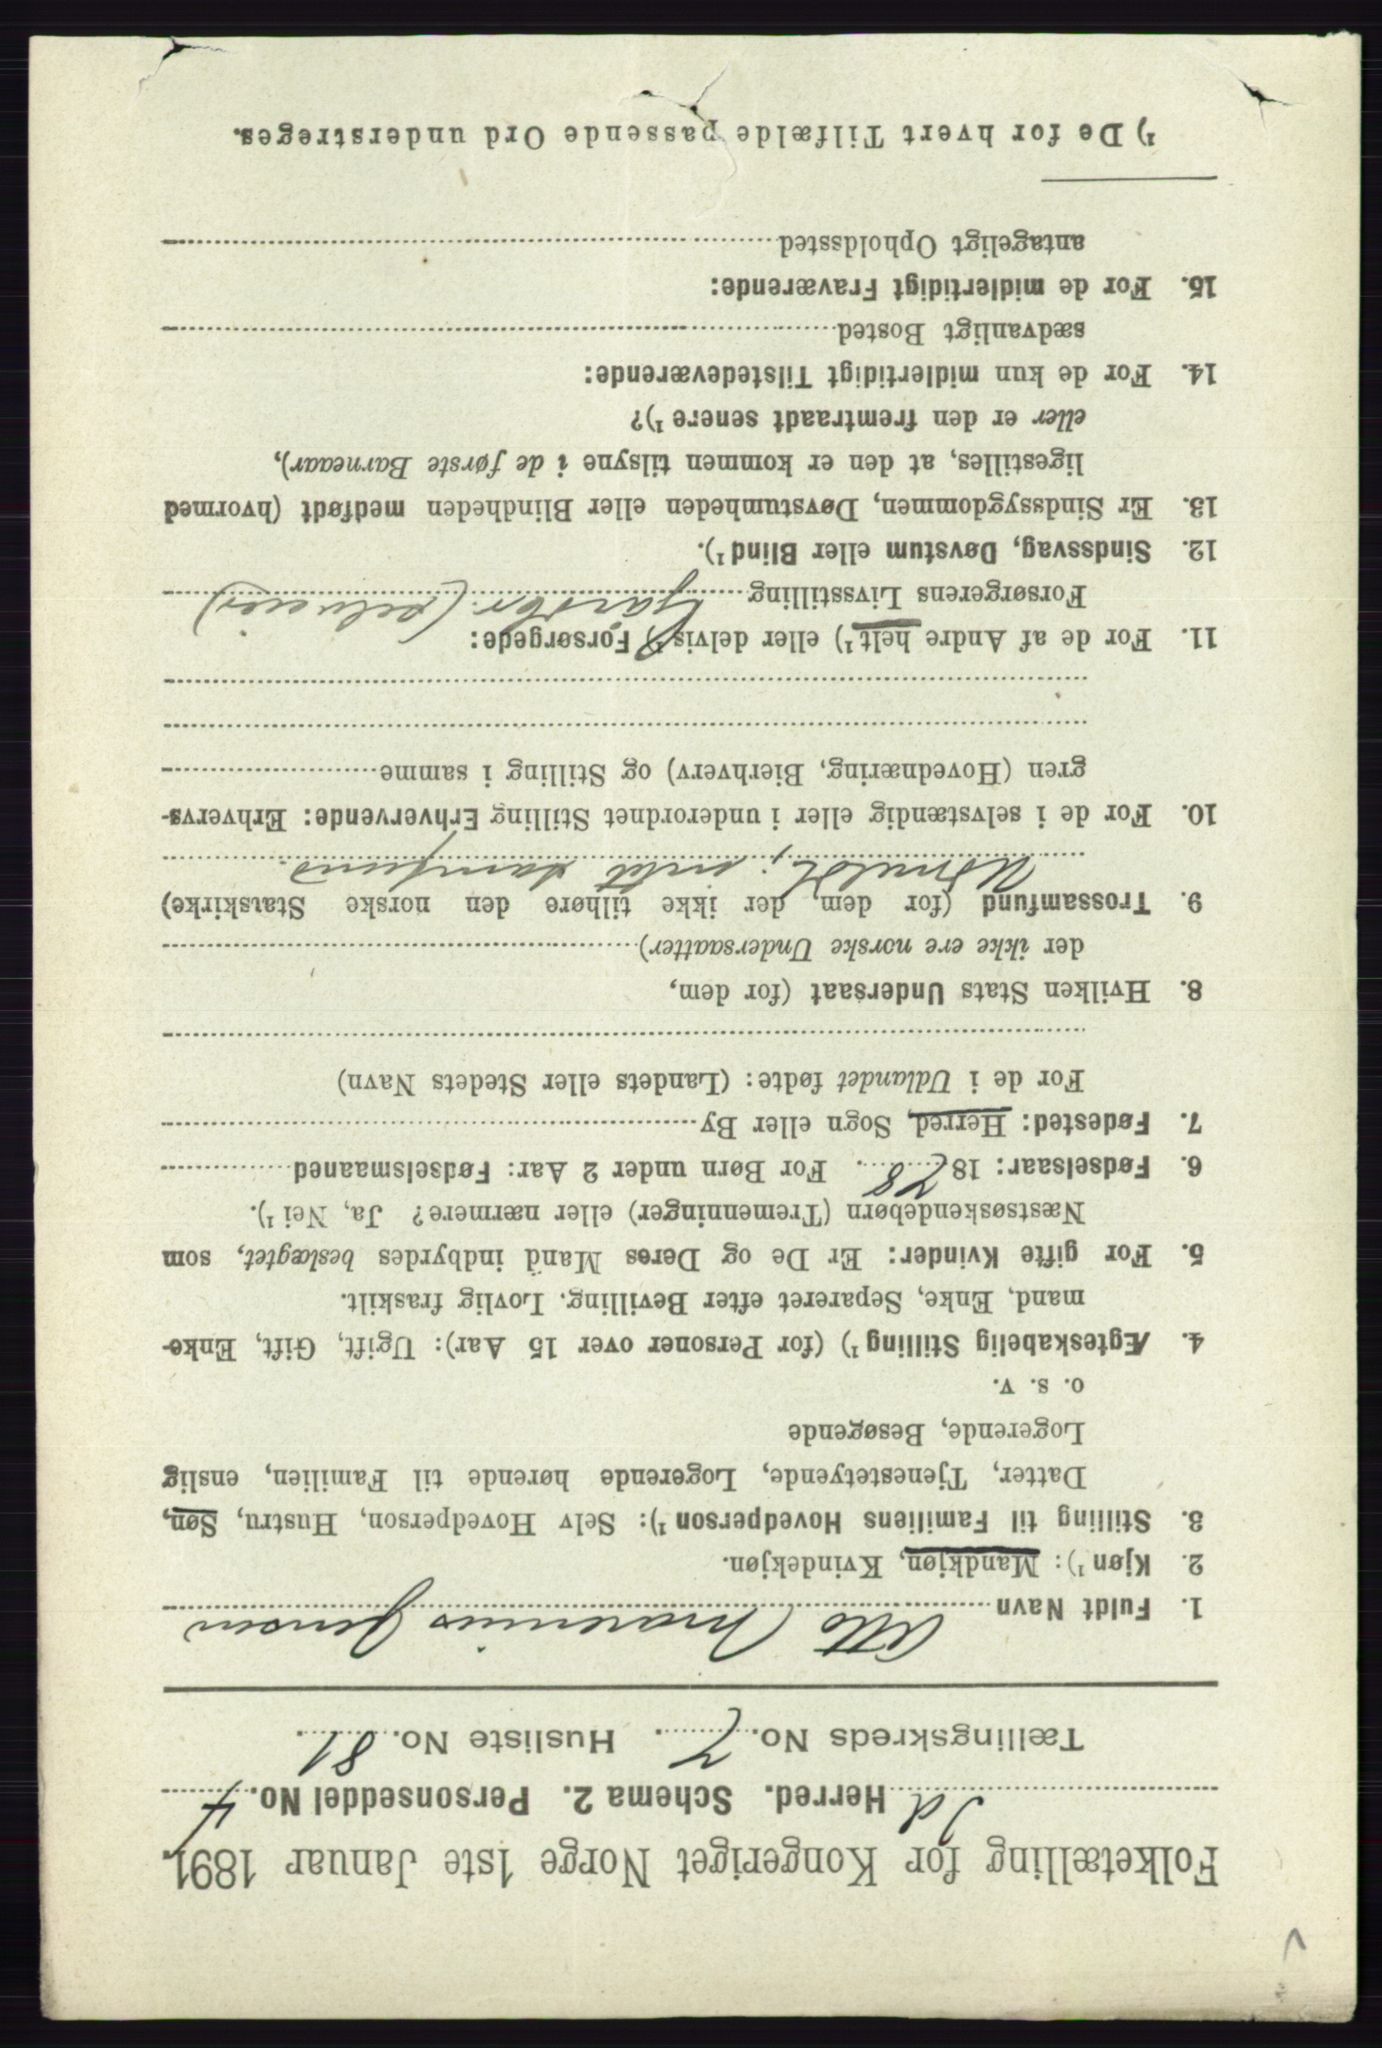 Folketælling for Kongeriget Norge 1ste Januar 1891.
Id Herred. Schema 2. Personseddel No. 4
Tællingskreds No. 7. Husliste No. 81.
1. Fuldt Navn Otto Marenius Jensen
2. Kjøn ¹): Mandkjøn, Kvindekjøn.
3. Stilling til Familiens Hovedperson ¹): Selv Hovedperson, Hustru, Søn,
Datter, Tjenestetyende, Logerende hørende til Familien, enslig
Logerende, Besøgende
o. s. v.
4. Ægteskabelig Stilling ¹) (for Personer over 15 Aar): Ugift, Gift, Enke-
mand, Enke, Separeret efter Bevilling. Lovlig fraskilt.
5. For gifte Kvinder: Er De og Deres Mand indbyrdes beslægtet, som
Næstsøskendebørn (Tremenninger) eller nærmere? Ja, Nei ¹).
6. Fødselsaar: 1878. For Børn under 2 Aar: Fødselsmaaned
7. Fødested: Herred, Sogn eller By
For de i Udlandet fødte: (Landets eller Stedets Navn)
8. Hvilken Stats Undersaat (for dem,
der ikke ere norske Undersaatter)
9. Trossamfund (for dem, der ikke tilhøre den norske Statskirke)
Udmeldt; intet samfund
10. For de i selvstændig eller i underordnet Stilling Erhvervende: Erhvervs-
gren (Hovednæring, Bierhverv) og Stilling i samme
11. For de af Andre helt ¹) eller delvis ¹) Forsørgede:
Forsørgerens Livsstilling Gaardbr. (selveier)
12. Sindssvag, Døvstum eller Blind ¹).
13. Er Sindssygdommen, Døvstumheden eller Blindheden medfødt (hvormed
ligestilles, at den er kommen tilsyne i de første Barneaar),
eller er den fremtraadt senere ¹)?
14. For de kun midlertidigt Tilstedeværende:
sædvanligt Bosted
15. For de midlertidigt Fraværende:
antageligt Opholdssted
¹) De for hvert Tilfælde passende Ord understreges.